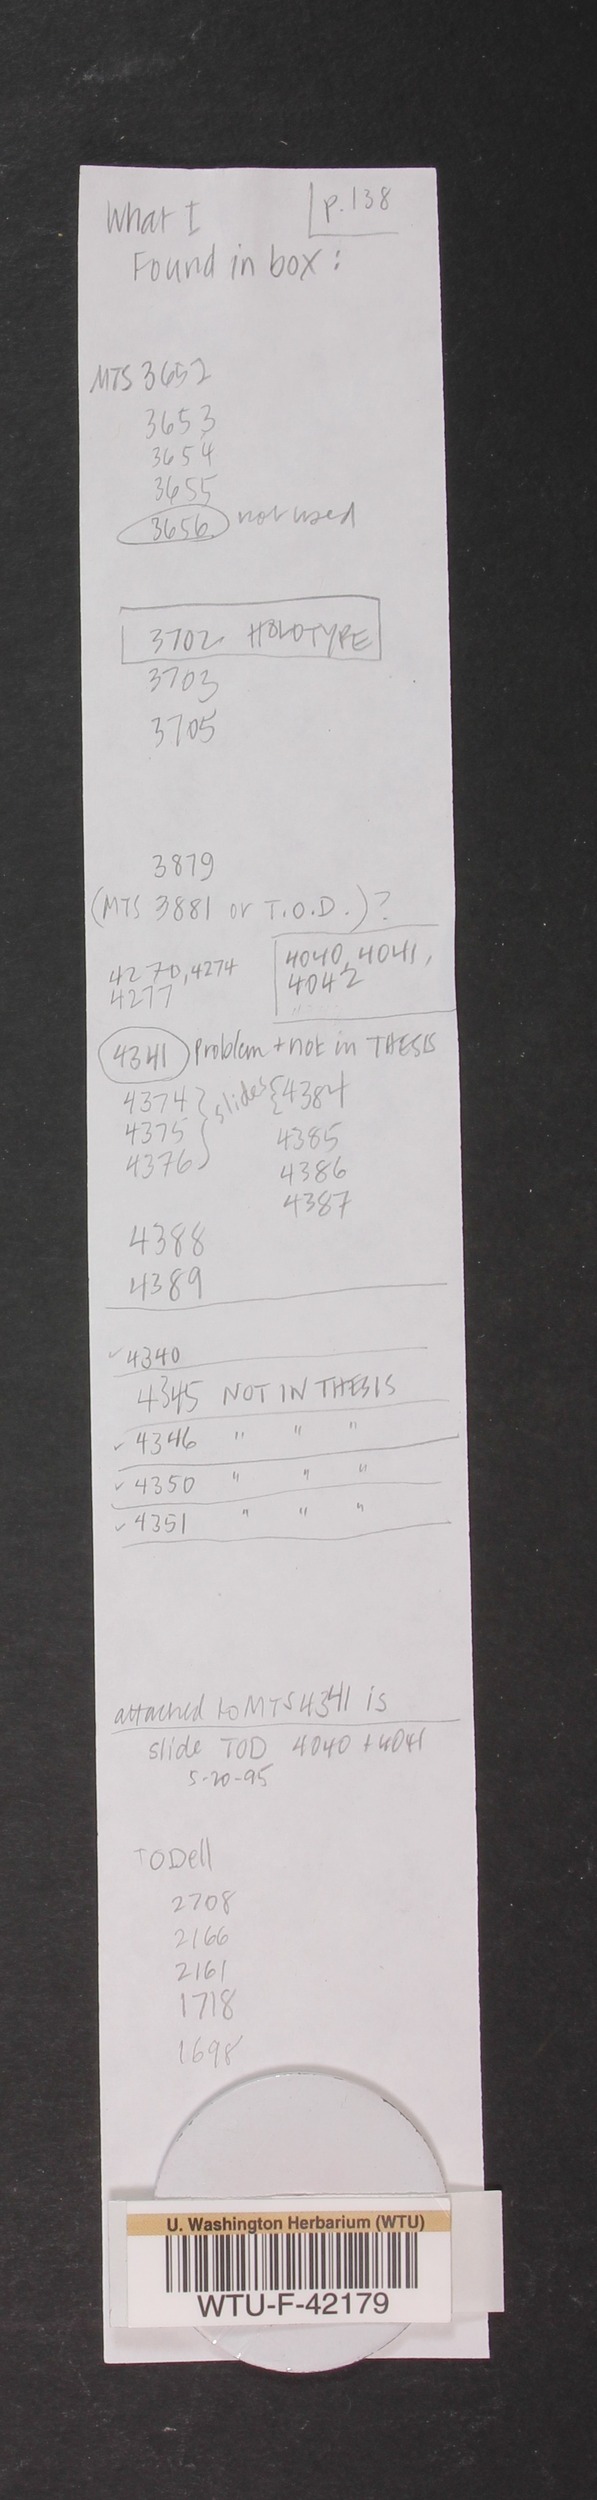 What I
p.138
Found in box:
MTS 3652
3653
3654
3655
3656 not used
3702 HOLOTYPE
3703
3705
3879
(MTS 3881 or T.O.D.)?
4270, 4274
4277
4040, 4041,
4042
4341 Problem + not in THESIS
4374 } slides { 4384
4375 4385
4376 4386
4387
4388
4389
✓ 4340
4345 NOT IN THESIS
✓ 4346 " " "
✓ 4350 " " "
✓ 4351 " " "
attached to MTS 4341 is
slide TOD 4040 + 4041
5-20-95
TODell
2708
2166
2161
1718
1698
U. Washington Herbarium (WTU)
WTU-F-42179